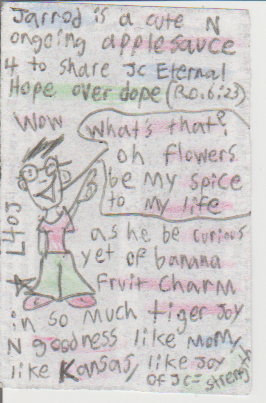 Jarrod is a cute N
ongoing applesauce
4 to share JC Eternal
Hope over dope (Ro. 6:23)
Wow
What's that?
oh flowers
be my spice
to my life
L4OJ
as he be curious
yet of banana
Fruit Charm
in so much tiger joy
N goodness like Mom,
like Kansas, like joy
of JC = strength